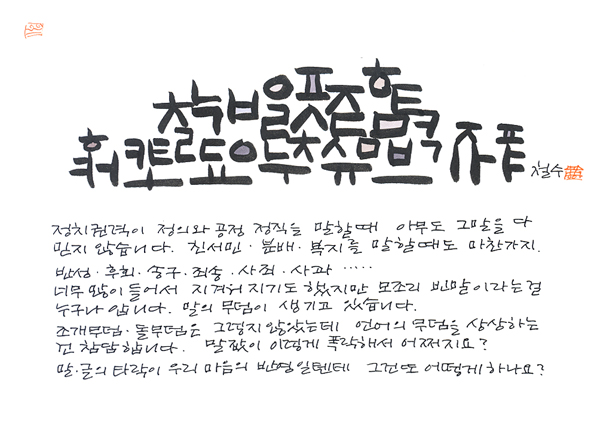 철수
정치권력이 정의와 공정 정직을 말할때 아무도 그말을 다
믿지 않습니다. 친서민·분배·복지를 말할때도 마찬가지.
반성·후회·송구·죄송·사죄·사과 ·····
너무 많이 들어서 지겨워지기도 했지만 모조리 빈말이라는걸
누구나 압니다. 말의 무덤이 생기고 있습니다.
조개무덤·돌무덤은 그렇지 않았는데 언어의 무덤을 상상하는
건 참담합니다. 말값이 이렇게 폭락해서 어쩌지요?
말·글의 타락이 우리 마음의 반영일텐데 그건또 어떻게하나요?